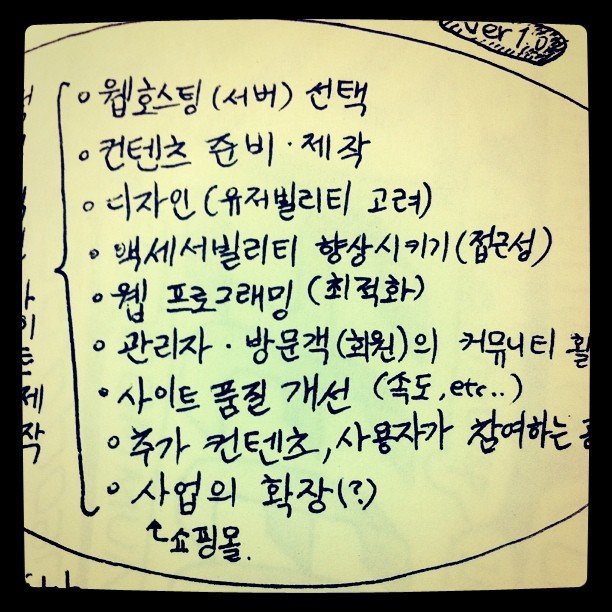 Ver 1.0
웹호스팅 (서버) 선택
컨텐츠 준비 · 제작
디자인 (유저빌리티 고려)
액세서빌리티 향상시키기 (접근성)
웹 프로그래밍 (최적화)
관리자 · 방문객(회원)의 커뮤니티 활
사이트 품질 개선 (속도, etc..)
추가 컨텐츠, 사용자가 참여하는
사업의 확장(?)
↑쇼핑몰.
이
트
제
작